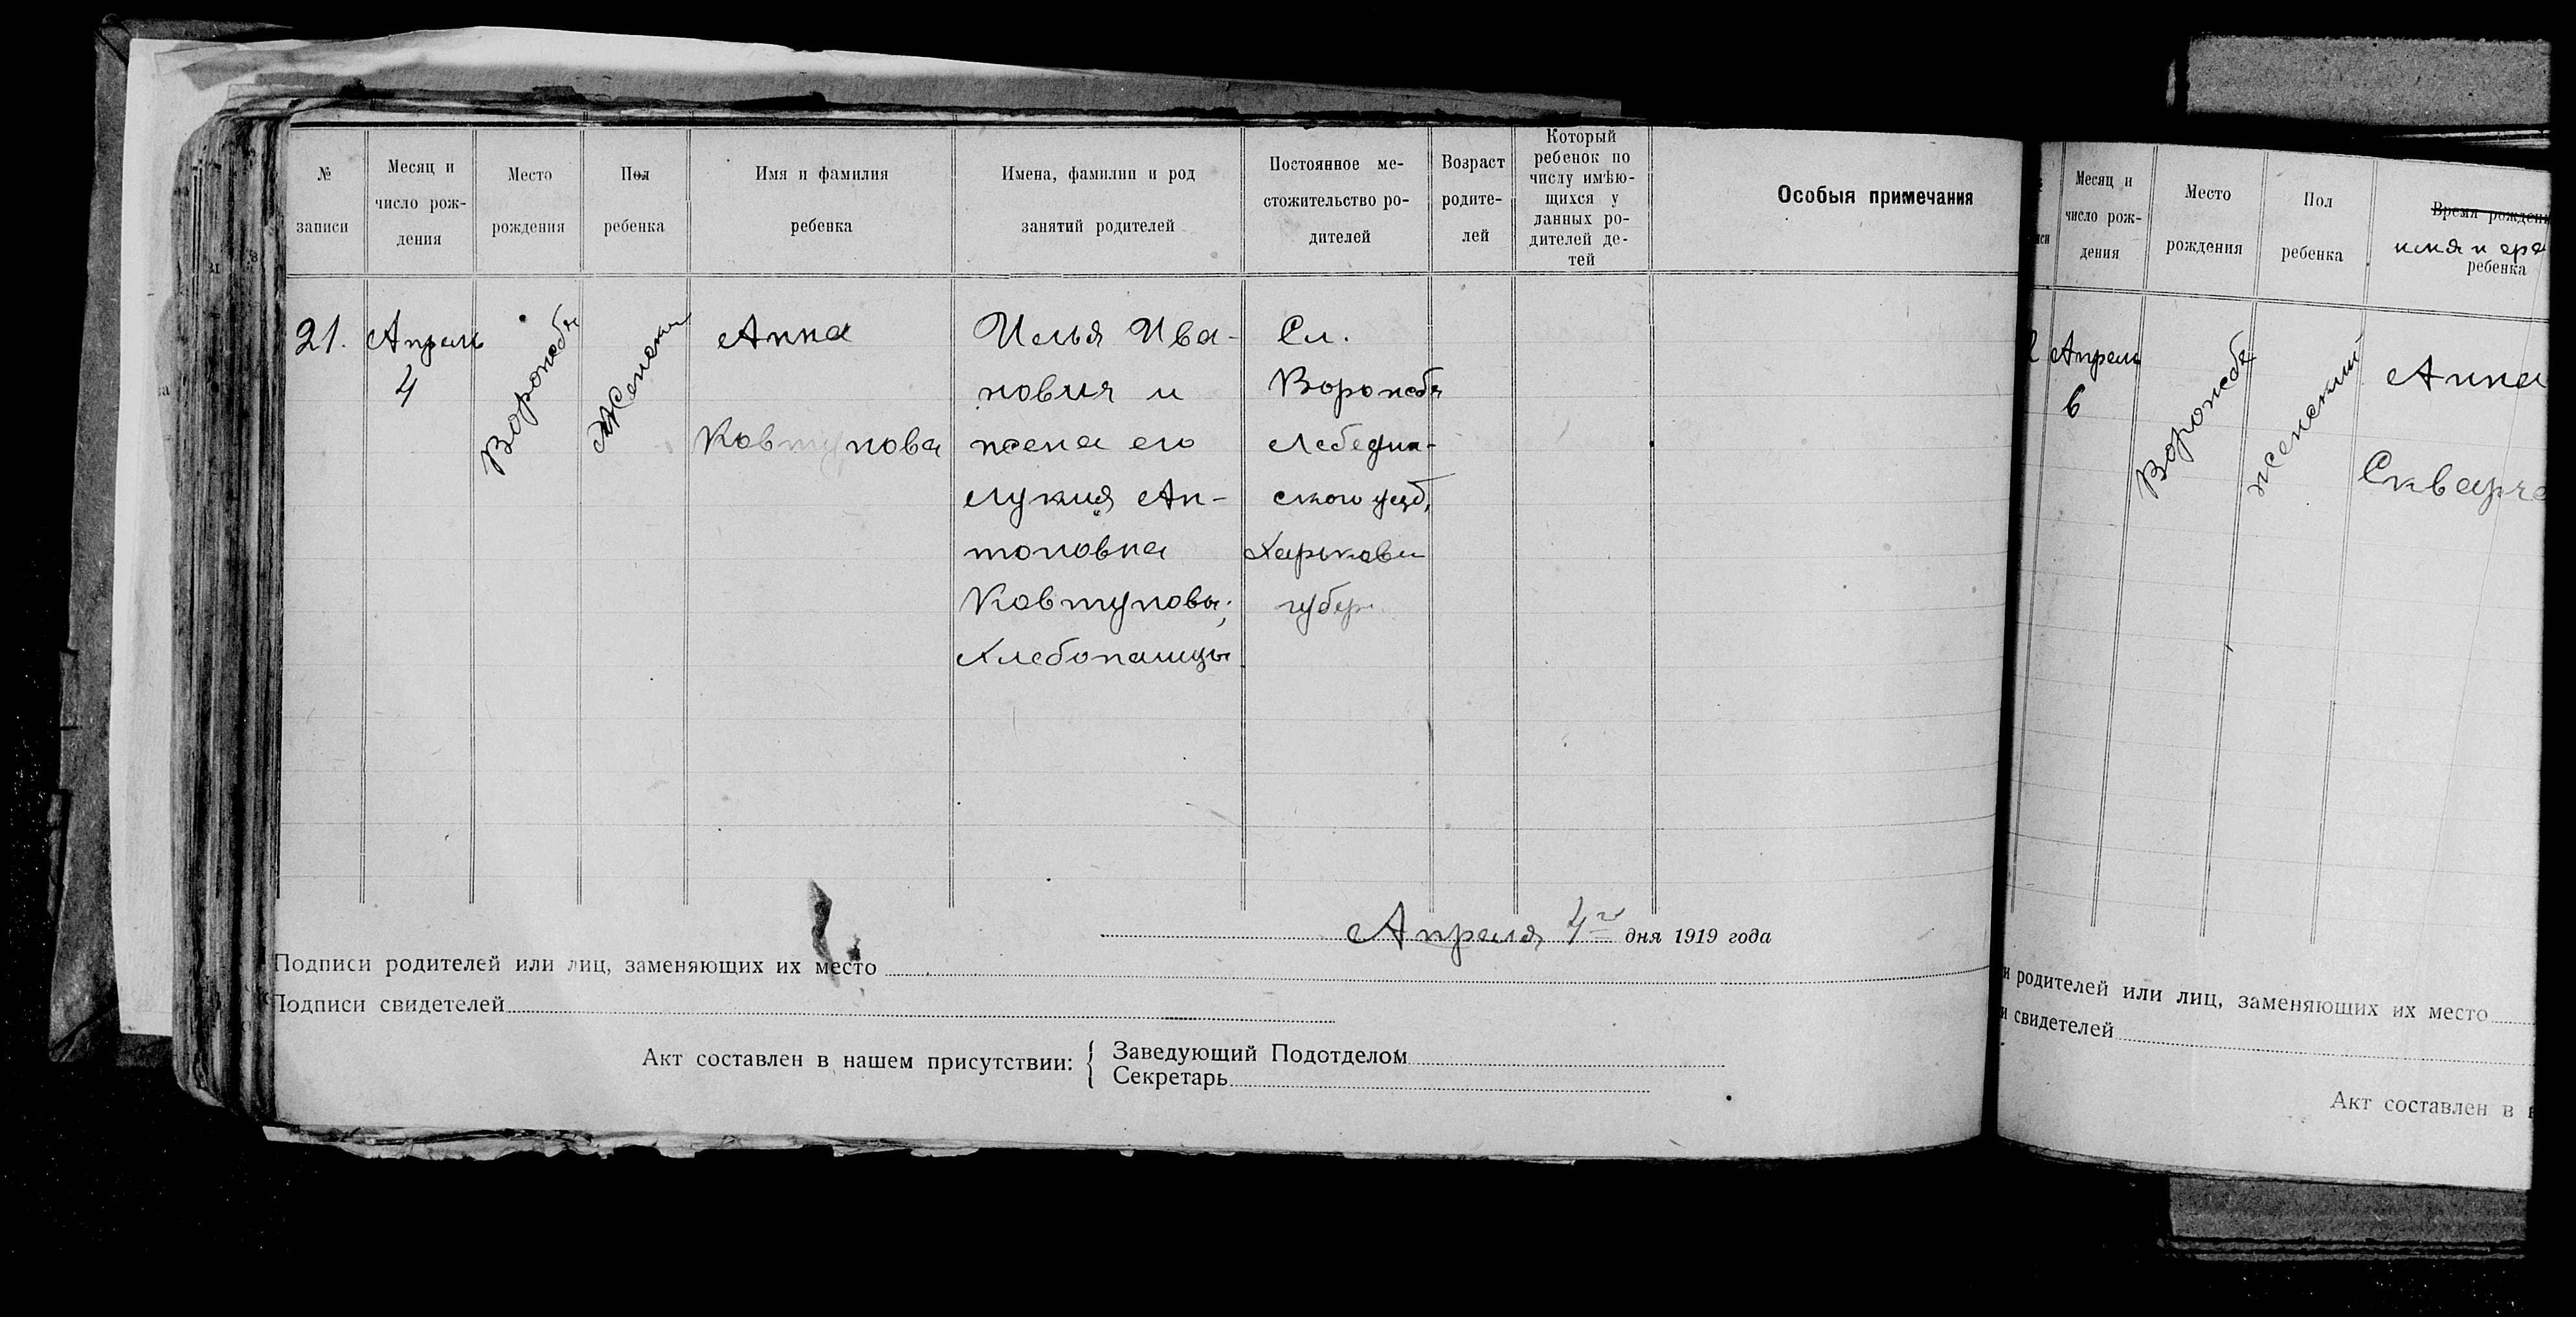 №
записи
Месяц и
число рож-
дения
Место
рождения
Пол
ребенка
Имя и фамилия
ребенка
Имена, фамилии и род
занятий родителей
Постоянное ме-
стожительство ро-
дителей
Возраст
родите-
лей
Который
ребенок по
числу имѣю-
щихся у
данных ро-
дителей де-
тей
Особыя примечания
21.
Апрель
4
Ворожба
Женски
Анна
Ковтунова
Илья Ива-
нович и
жена его
Лукия Ан-
тоновна
Ковтуновы;
Хлебопашцы
Сл.
Ворожба
Лебедин-
ского уезд.
Харьков
губер
Апреля 4го дня 1919 года
Подписи родителей или лиц, заменяющих их место
Подписи свидетелей
Акт составлен в нашем присутствии:
Заведующий Подотделом
Секретарь
Месяц и
число рож-
дения
Место
рождения
Пол
ребенка
Время рождени
имя и
ребенка
Апрель
6
Ворожба
женский
Анна
и родителей или лиц, заменяющих их место
и свидетелей
Акт составлен в